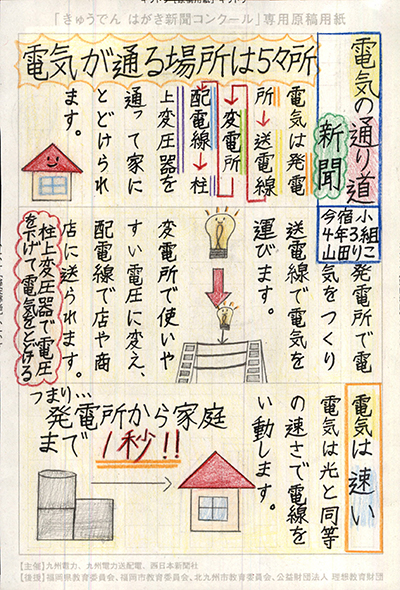 「きゅうでん はがき新聞コンクール」専用原稿用紙
電気の通り道
新聞
今宿小
4年3組
山田りこ
電気が通る場所は5ヶ所
電気は発電
所→送電線
→変電所→
配電線→柱
上変圧器を
通って家に
とどけられ
ます。
発電所で電
気をつくり
送電線で電気を
運びます。
変電所で使いや
すい電圧に変え、
配電線で店や商
店に送られます。
柱上変圧器で電圧
を下げて電気をとどける
電気は速い
電気は光と同等
の速さで電線を
い動します。
つまり…
発電所から家庭
まで1秒!!
【主催】九州電力、九州電力送配電、西日本新聞社
【後援】福岡県教育委員会、福岡市教育委員会、北九州市教育委員会、公益財団法人 理想教育財団